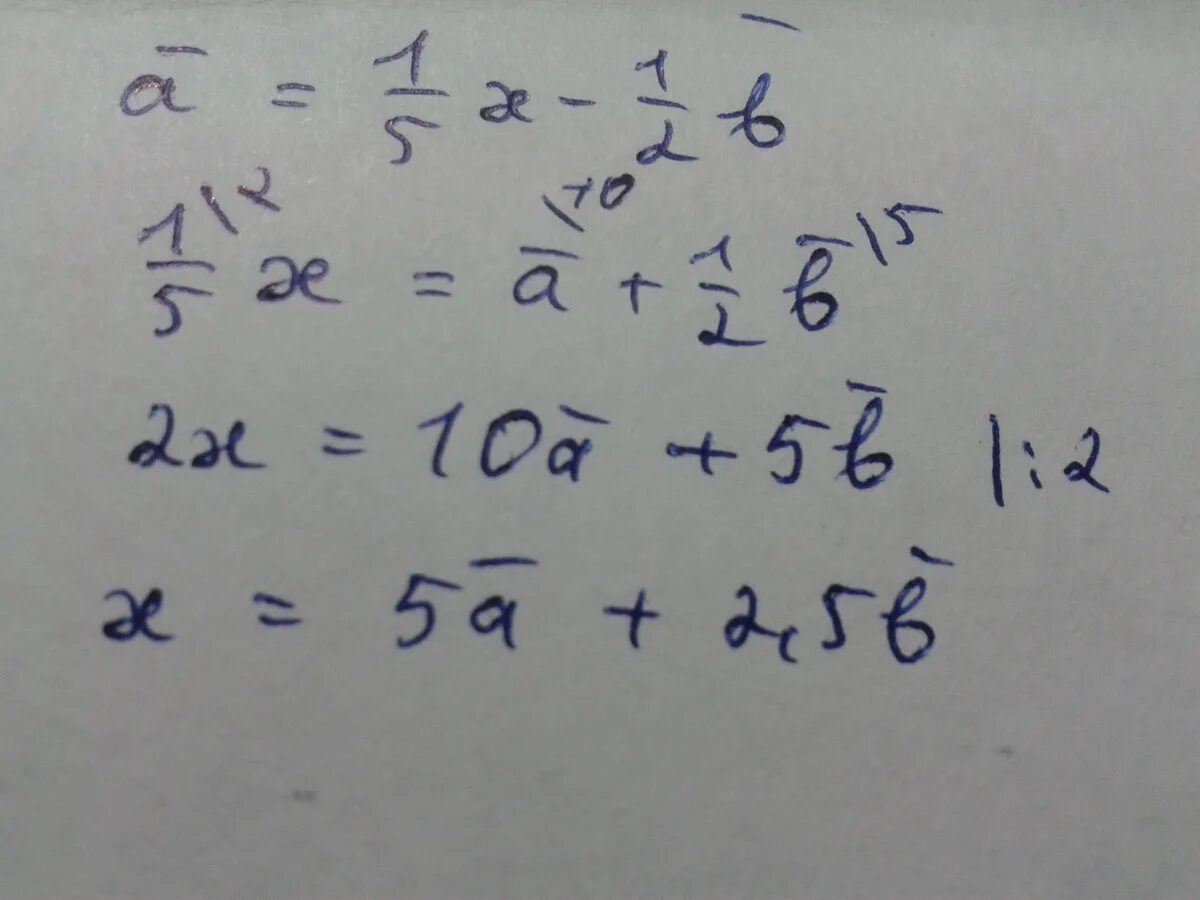 a̅ = 1/5 x - 1/2 b̅
1/5 \2 x = a̅ \10 + 1/2 b̅ \5
2x = 10a̅ + 5b̅ |:2
x = 5a̅ + 2,5b̅